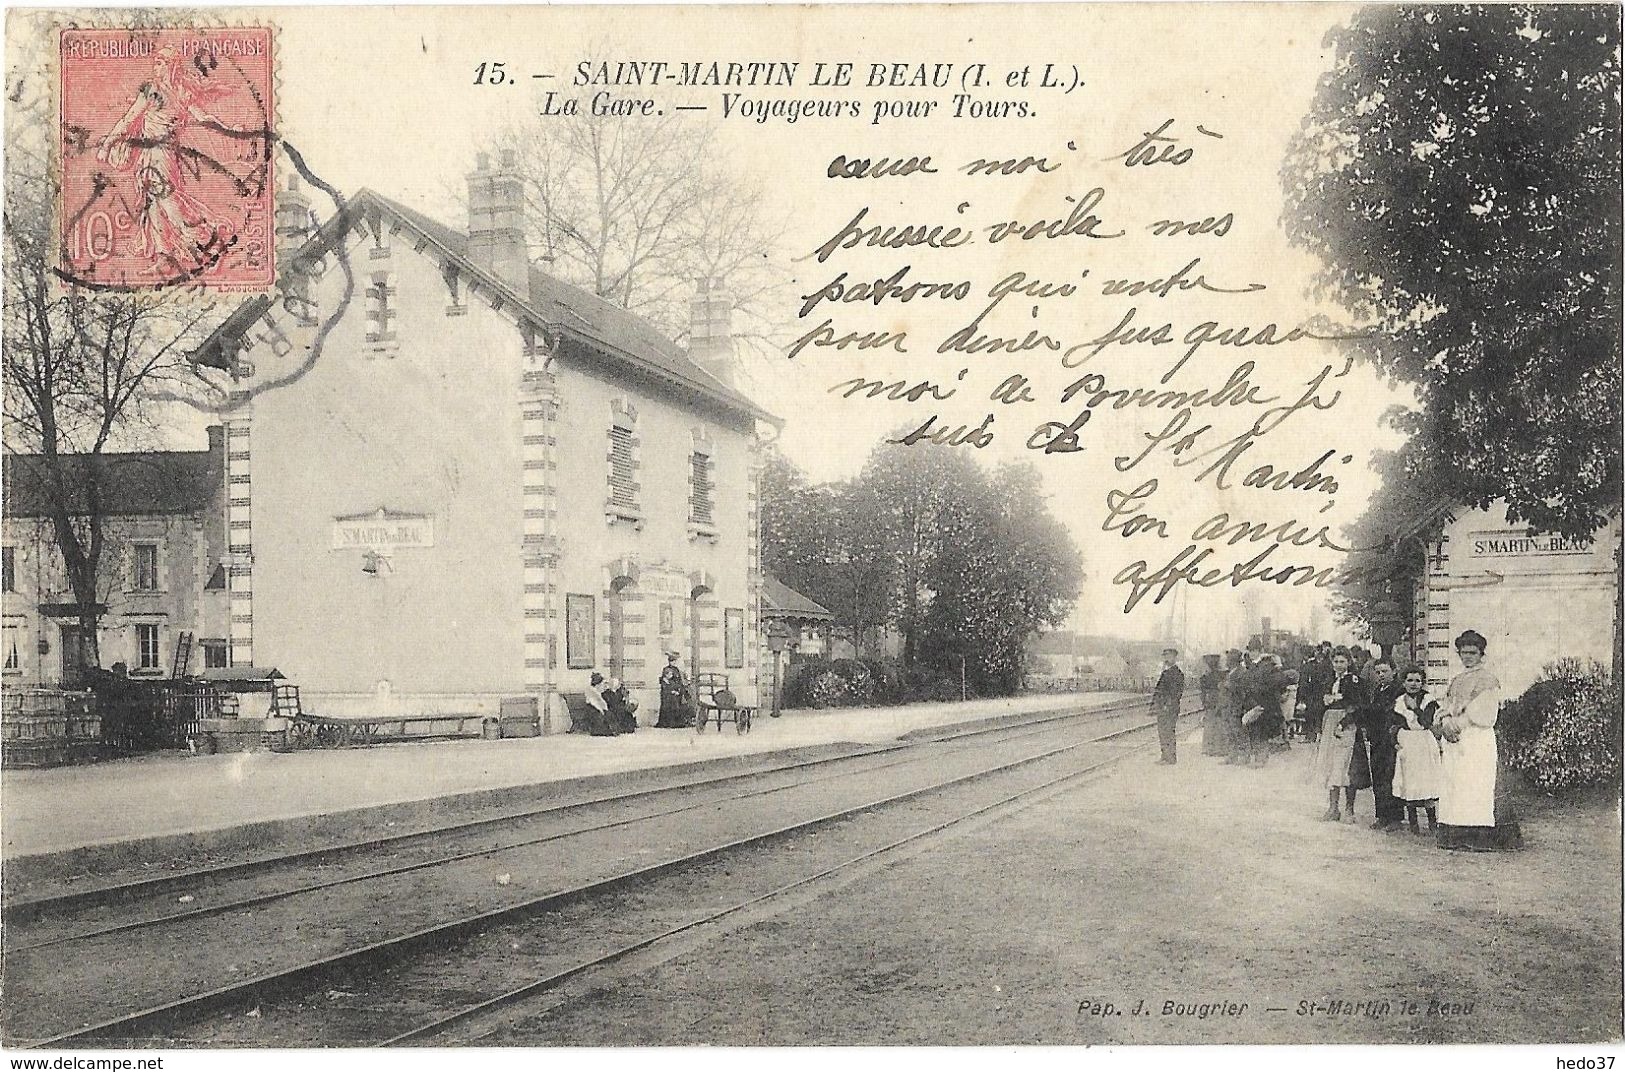 RÉPUBLIQUE FRANÇAISE
10c
POSTES
15. — SAINT-MARTIN LE BEAU (I. et L.).
La Gare. — Voyageurs pour Tours.
moi très
pressée voila mes
patrons qui
pour diner jusquau
moi de novembre je
suis St Martin
Ton amie
affectionn
St MARTIN LE BEAU
St MARTIN LE BEAU
Pap. J. Bougrier — St-Martin le Beau
hedo37